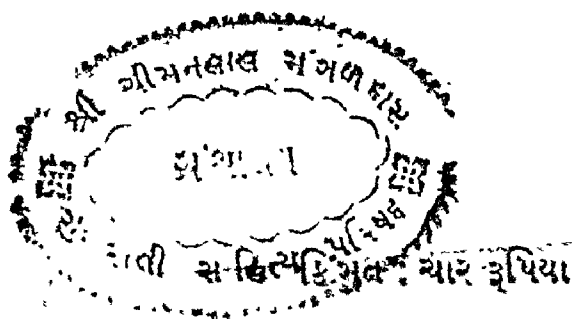 શ્રી ચીમનલાલ મંગળદાસ
સાહિત્ય પરિષદ
કિંમત : ચાર રૂપિયા